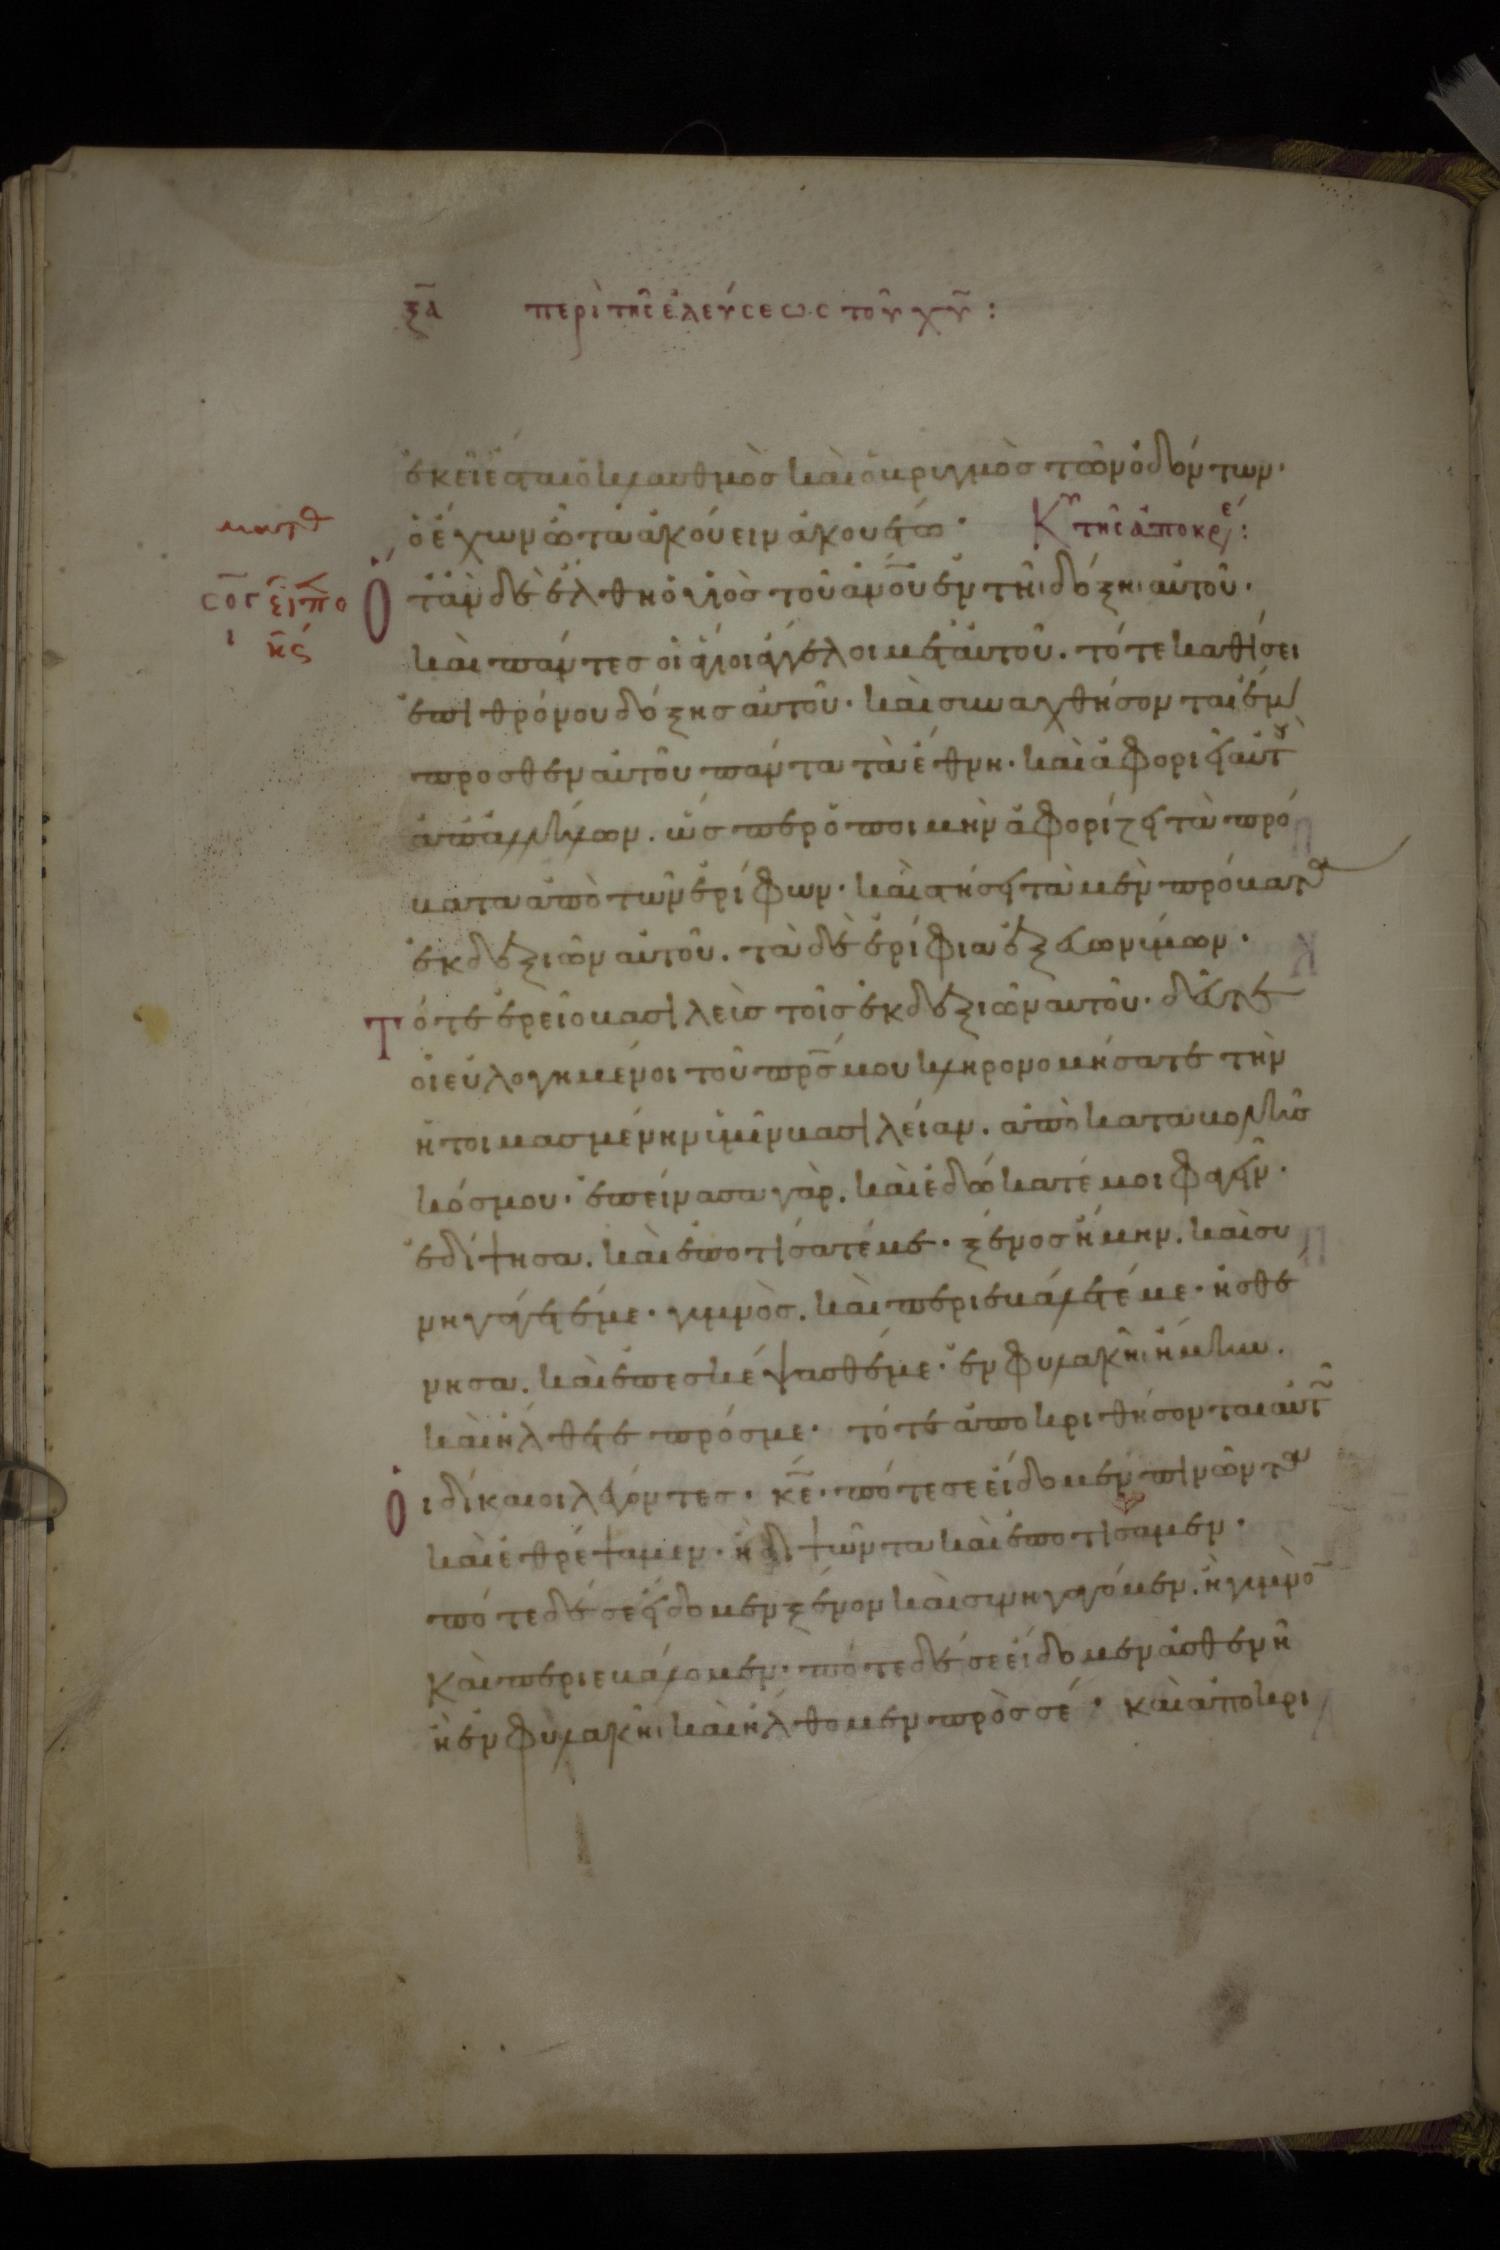 ξα περὶ τῆς ἐλεύσεως τοῦ χυ :
ἐκεῖ ἔσται ὁ κλαυθμὸσ καὶ ὁ βριγμὸσ τῶν ὀδόντων·
ματθ
ὁ ἔχων ὦτα ἀκούειν ἀκουέτω· Κυ τῆς ἀποκρέ :
σος
Ὅταν δὲ ἔλθη ὁ υἱὸσ τοῦ ἀνου ἐν τῆι δόξηι αὐτοῦ·
ι
καὶ πάντεσ οἱ ἅγιοι ἄγγελοι μετ' αὐτοῦ. τότε καθίσει
ἐπὶ θρόνου δόξησ αὐτοῦ· καὶ συναχθήσονται ἔμ
προσθεν αὐτοῦ πάντα τὰ ἔθνη· καὶ ἀφοριεῖ αὐτ
ἀπ' ἀλλήλων. ὥσπερ ὁ ποιμὴν ἀφορίζει τὰ πρό
βατα ἀπὸ τῶν ἐρίφων· καὶ στήσει τὰ μὲν πρόβατα
ἐκ δεξιῶν αὐτοῦ. τὰ δὲ ἐρίφια ἐξ εὐωνύμων·
Τότε ἐρεῖ ὁ βασιλεὺσ τοῖσ ἐκ δεξιῶν αὐτοῦ· δεῦτε
οἱ εὐλογημένοι τοῦ πρσ μου κληρονομήσατε τὴν
ἡτοιμασμένην ὑμῖν βασιλείαν. ἀπὸ καταβολῆσ
κόσμου· ἐπείνασα γὰρ. καὶ ἐδώκατέ μοι φαγεῖν·
ἐδίψησα. καὶ ἐποτίσατέ με· ξένοσ ἤμην. καὶ συ
νηγάγετέ με· γυμνὸσ. καὶ περιεβάλετέ με· ἠσθέ
νησα. καὶ ἐπεσκέψασθέ με· ἐν φυλακῆι ἤμην.
καὶ ἤλθετε πρόσ με· τότε ἀποκριθήσονται αὐτ
Οἱ δίκαιοι λέγοντεσ· κε· πότε σε εἴδομεν πινῶντα
καὶ ἐθρέψαμεν· ἢ διψῶντα καὶ ἐποτίσαμεν·
πότε δέ σε εἴδομεν ξένον καὶ συνηγάγομεν. ἢ γυμνὸ
καὶ περιεβάλομεν· πότε δέ σε εἴδομεν ἀσθενῆ
ἢ ἐν φυλακῆι καὶ ἤλθομεν πρὸς σέ· καὶ ἀποκρι